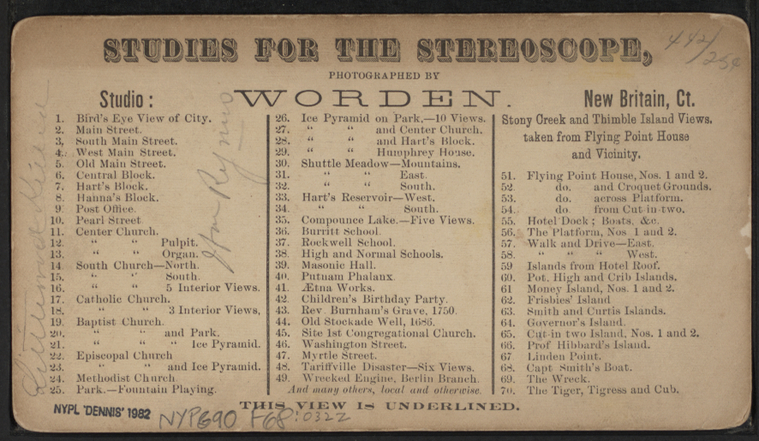 STUDIES FOR THE STEREOSCOPE,
442/
254
PHOTOGRAPHED BY
Studio:
WORDEN.
New Britain, Ct.
1. Bird's Eye View of City.
2. Main Street.
3. South Main Street.
4. West Main Street.
5. Old Main Street.
6. Central Block.
7. Hart's Block.
8. Hanna's Block.
9. Post Office.
10. Pearl Street
11. Center Church.
12. " " Pulpit.
13. " " Organ.
14. South Church—North.
15. " " South.
16. " " 5 Interior Views.
17. Catholic Church.
18. " " 3 Interior Views.
19. Baptist Church.
20. " " and Park.
21. " " " Ice Pyramid.
22. Episcopal Church
23. " " and Ice Pyramid.
24. Methodist Church
25. Park.—Fountain Playing.
26. Ice Pyramid on Park.—10 Views.
27. " " and Center Church.
28. " " and Hart's Block.
29. " " Humphrey House.
30. Shuttle Meadow—Mountains.
31. " " East.
32. " " South.
33. Hart's Reservoir—West.
34. " " South.
35. Compounce Lake.—Five Views.
36. Burritt School.
37. Rockwell School.
38. High and Normal Schools.
39. Masonic Hall.
40. Putnam Phalanx.
41. Ætna Works.
42. Children's Birthday Party.
43. Rev. Burnham's Grave, 1750.
44. Old Stockade Well, 1686.
45. Site 1st Congregational Church.
46. Washington Street.
47. Myrtle Street.
48. Tariffville Disaster—Six Views.
49. Wrecked Engine, Berlin Branch.
And many others, local and otherwise.
Stony Creek and Thimble Island Views.
taken from Flying Point House
and Vicinity.
51. Flying Point House, Nos. 1 and 2.
52. do. and Croquet Grounds.
53. do. across Platform.
54. do. from Cut-in-two.
55. Hotel Dock; Boats, &c.
56. The Platform, Nos. 1 and 2.
57. Walk and Drive—East.
58. " " " West.
59 Islands from Hotel Roof.
60. Pot, High and Crib Islands.
61 Money Island, Nos. 1 and 2.
62. Frisbies' Island
63. Smith and Curtis Islands.
64. Governor's Island.
65. Cut-in two Island, Nos. 1 and 2.
66. Prof Hibbard's Island.
67 Linden Point.
68. Capt Smith's Boat.
69. The Wreck.
70. The Tiger, Tigress and Cub.
THIS VIEW IS UNDERLINED.
NYPL 'DENNIS' 1982
NYPG90 F68:0322